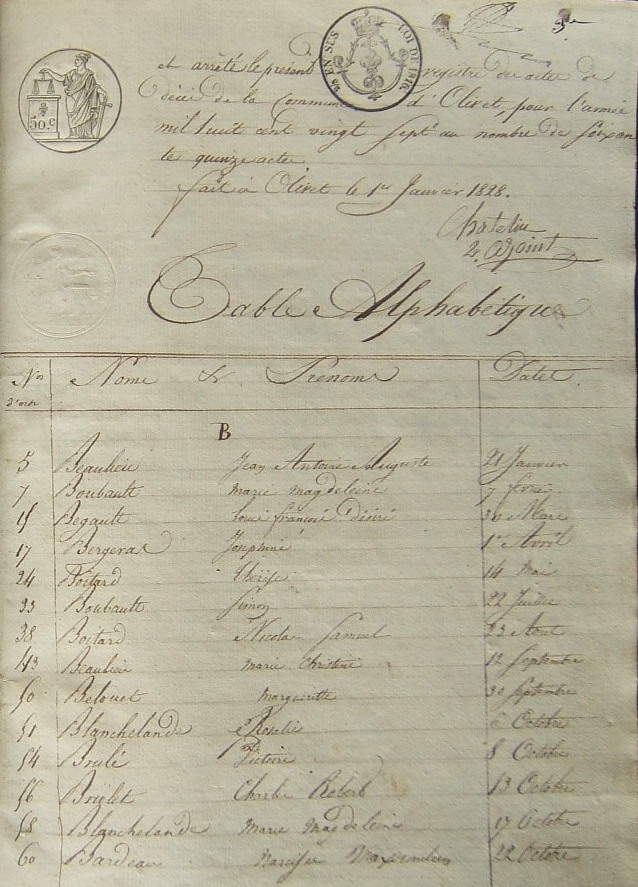 et arrêté le présent registre des actes de
décès de la Commune d'Olivet, pour l'année
mil huit cent vingt sept au nombre de soixan
te quinze actes
fait à Olivet le 1er Janvier 1828.
EN SUS
LOI DE 1816
50.c
2. adjoint
Table Alphabétique
Nos d'ordre Noms & Prénoms Dates
B
5 Beaulieu Jean Antoine Auguste 21 Janvier
7 Boubault marie magdeleine 7 février
15 Begault Louis françois désiré 30 Mars
17 Bergeras Joséphine 1er Avril
24 Boitard thérèse 14 Mai
33 Boubault Simon 22 Juillet
38 Boitard Nicolas Samuel 23 Aout
43 Beaulieu marie Christine 12 Septembre
50 Belouet marguerite 30 Septembre
51 Blanchelande Rosalie 6 Octobre
54 Brulé Victoire 8 Octobre
56 Charles Robert 13 Octobre
58 Blanchelande Marie Magdeleine 17 Octobre
60 Bardeau Narcisse Maximilien 22 Octobre